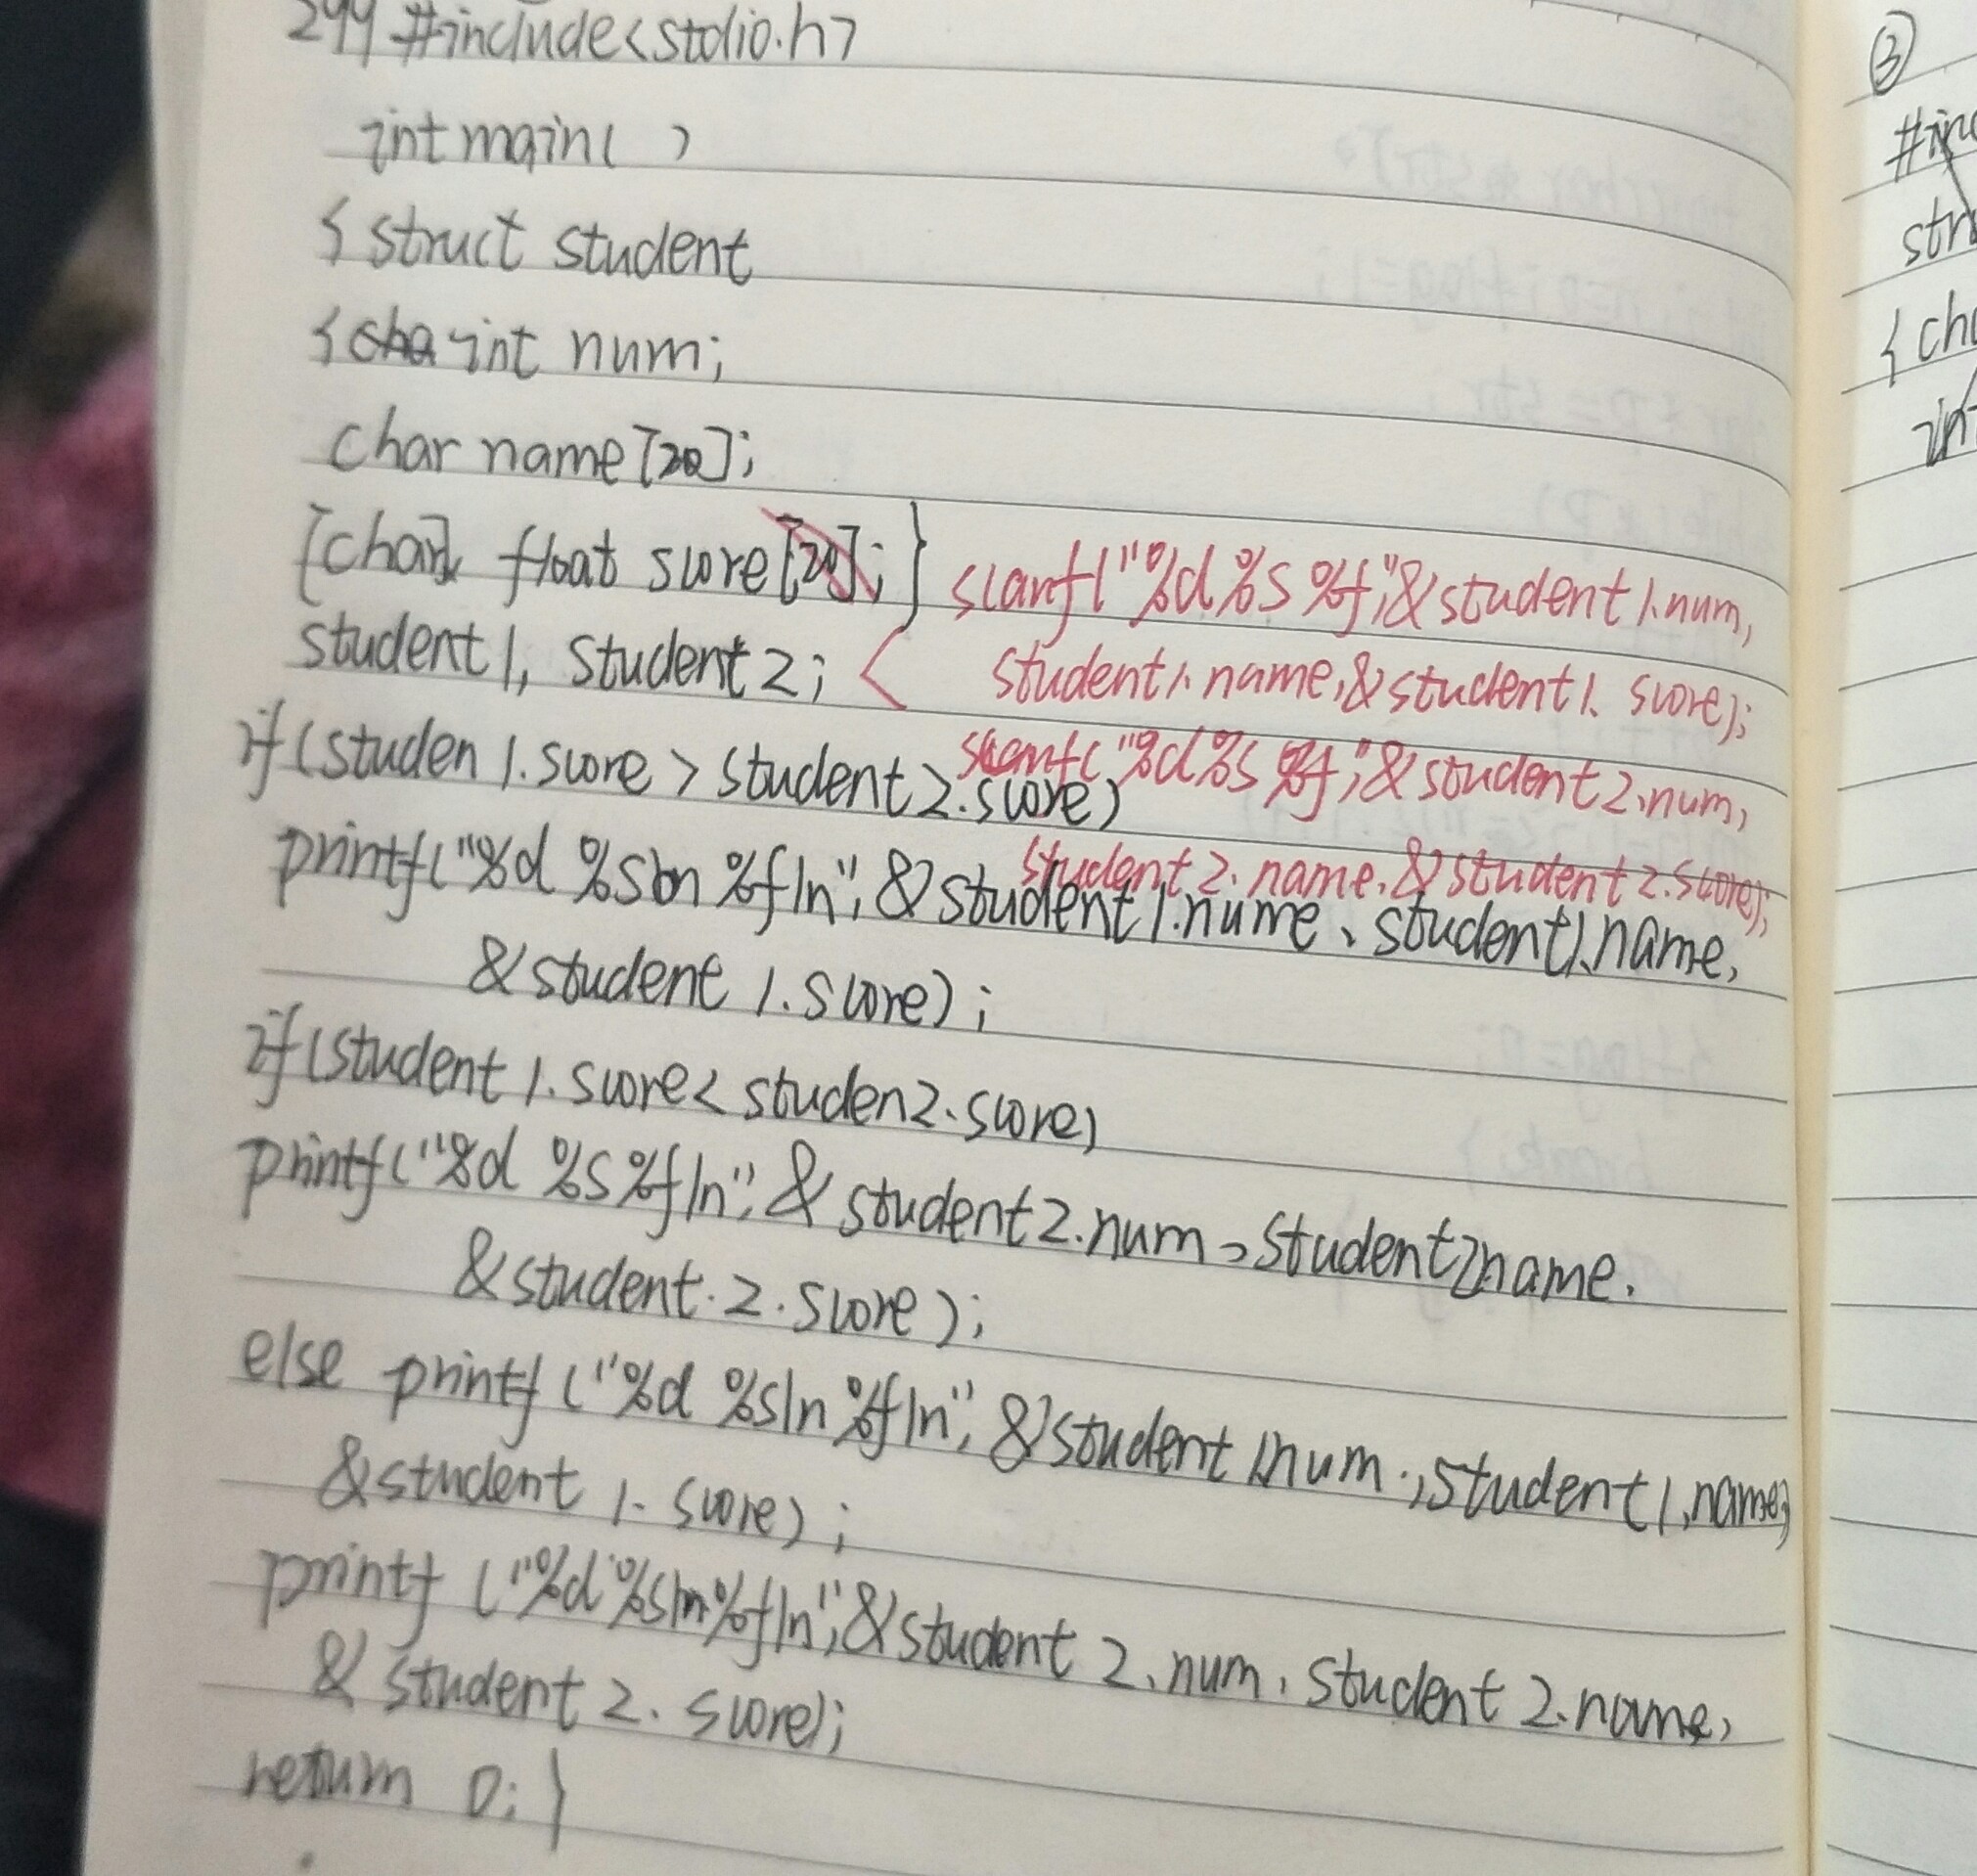 299 #include<stdio.h>
int main( )
{ struct student
{ cha int num;
char name[20];
[char] float score[20]; } scanf("%d%s%f",&student1.num,
student1, student2; < student1.name,&student1.score);
scanf("%d%s%f",&student2.num,
if(studen1.score > student2.score)
student2.name,&student2.score);
printf("%d %s\n %f\n", &student1.nume、student1.name,
&student1.score);
if(student1.score< studen2.score)
printf("%d %s%f\n", &student2.num,student2name.
&student.2.score);
else printf("%d %s\n %f\n", &student1.num.,student1.name,
&student1.score);
printf("%d%s\n%f\n",&student2.num,student2.name,
&student2.score);
return 0;}
③
#inc
str
{ cha
in